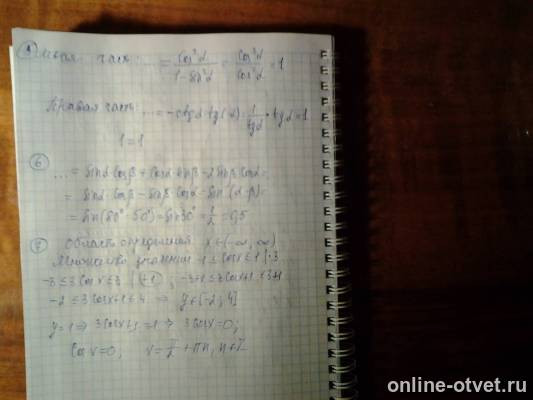 Левая часть: ... = cos²α / (1 − sin²α) = cos²α / cos²α = 1
Правая часть: ... = −ctgα · tg(α) · 1/tgα · tgα = 1
1 = 1
⑥
... = sinα cosβ + cosα sinβ − 2 sinβ cosα =
= sinα · cosβ − sinβ · cosα = sin (α − β) =
= sin (80° − 50°) = sin 30° = 1/2 = 0,5
⑦ Область определения x ∈ (−∞, ∞)
Множество значений −1 ≤ cos x ≤ 1 | · 3
−3 ≤ 3 cos x ≤ 3 | +1 ; −3+1 ≤ 3 cos x + 1 ≤ 3+1
−2 ≤ 3 cos x + 1 ≤ 4 ⇒ y ∈ [−2; 4]
y = 1 ⇒ 3 cos x + 1 = 1 ⇒ 3 cos x = 0;
cos x = 0; x = π/2 + πn, n ∈ Z
online-otvet.ru